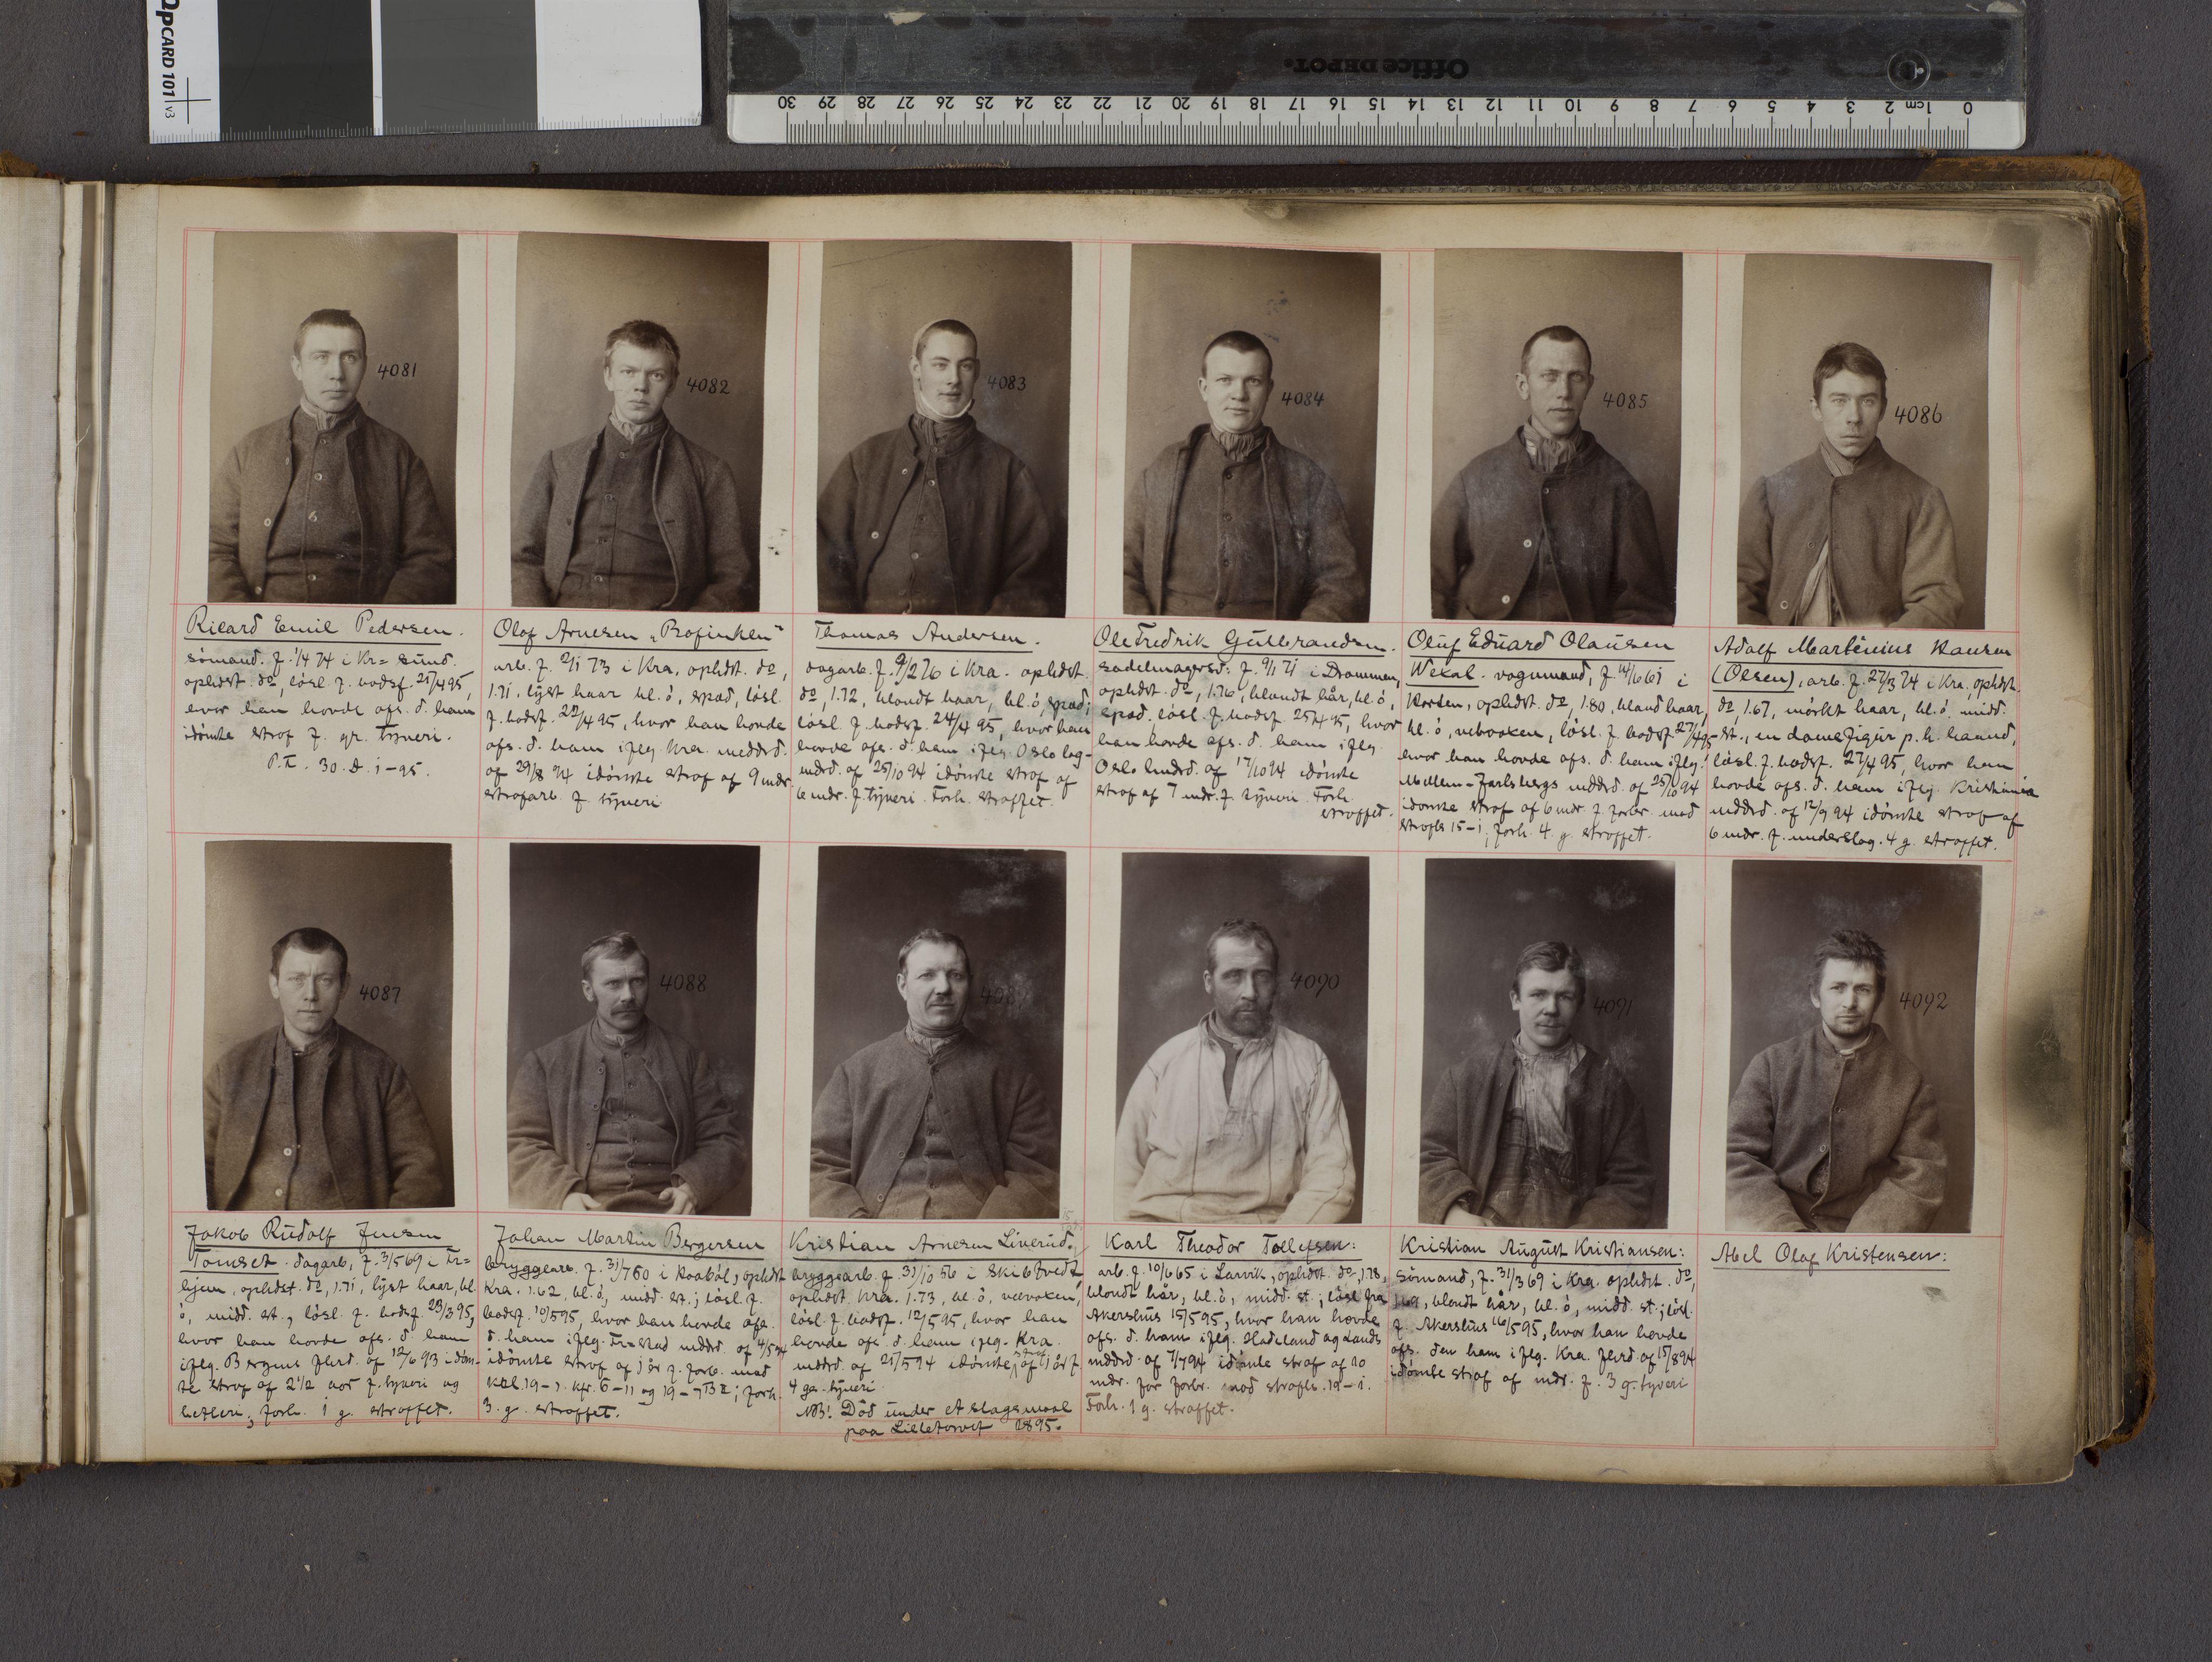 OpCARD 101 v3
Office DEPOT.
30 29 28 27 26 25 24 23 22 21 20 19 18 17 16 15 14 13 12 11 10 9 8 7 6 5 4 3 2 cm 1 0
4081
4082
4083
4084
4085
4086
Ricard Emil Pedersen.
sömand. f. 1/4 74 i Kr= sund.
ophdst. do, lösl. f. bodsf. 21/4 95,
hvor han havde afs. d. ham
idömte straf f. gr. tyveri.
P.T. 30. d. 1-95.
Olaf Arnesen „Bofinken"
arb. f. 2/1 73 i Kra, ophdst. do,
1.71, lyst haar, bl. ö, spæd, lösl.
f. bodsf. 22/4 95, hvor han havde
afs. d. ham iflg Kra. meddrd.
af 29/8 94 idömte straf af 9 mdr.
strafarb. f. tyveri
Thomas Andersen.
dagarb. f. 9/2 76 i Kra. ophdst.
do, 1.72, blondt haar, bl. ö, spæd;
lösl. f. bodsf. 24/4 95, hvor han
havde afs. d. ham iflg. Oslo lag-
mdrd. af 25/10 94 idömte straf af
6 mdr. f. tyveri. Forh. straffet.
Ole Fredrik Gulbrandsen.
sadelmagersv. f. 9/1 71 i Drammen,
ophdst. do, 1.76, blondt hår, bl. ö,
spæd. lösl. f. bodsf. 25/4 95, hvor
han havde afs. d. ham iflg.
Oslo lmdrd. af 17/10 94 idömte
straf af 7 mdr. f. tyveri. Forh.
straffet.
Oluf Eduard Olausen
Wekal. vognmand, f. 14/6 61 i
Horten, ophdst. do, 1.80, bland haar,
bl. ö, velvoxen, lösl. f. bodsf. 27/4 95
hvor han havde afs. d. ham iflg.
Mellem-Jarlsbergs mddrd. af 25/10 94
idömte straf af 6 mdr. f. forbr. mod
strafls 15-1, forh. 4. g. straffet.
Adolf Martinius Hansen
(Olsen), arb. f. 27/3 74 i Kra, ophdst.
do, 1.67, mörkt haar, bl. ö. midd.
st., en damefigur p. h. haand,
lösl. f. bodsf. 27/4 95, hvor han
havde afs. d. ham iflg. Kristiania
mddrd. af 12/9 94 idömte straf af
6 mdr. f. underslag. 4 g. straffet.
4087
4088
4089
4090
4091
4092
Jakob Rudolf Jensen
Tomset. dagarb, f. 3/5 69 i Tr=
hjem, ophdst. do, 1.71, lyst haar, bl.
ö, midd. st., lösl. f. bodsf. 23/3 95,
hvor han havde afs. d. ham
iflg. Bergens flerd. af 12/6 93 idöm-
te straf af 2 1/2 aar f. tyveri og
betleri; forh. 1 g. straffet.
Johan Martin Bergersen
bryggearb. f. 31/7 60 i Hobøl, ophdst
Kra. 1.62, bl. ö, midd. st.; lösl. f.
bodsf. 10/5 95, hvor han havde afs.
d. ham iflg. Fr.stad mddrd. af 4/5 94
idömte straf af 1 år f. forb. mod
kpl. 19-1. kfr. 6-11 og 19-
3. g. straffet.
Kristian Arnesen Liverud.
bryggearb. f. 31/10 56 i Skibtvedt
ophdst. Kra. 1.73, bl. ö, velvoxen,
lösl. f. bodsf. 12/5 95, hvor han
havde afs. d. ham iflg. Kra.
mddrd. af 21/5 94 idömte straf af 1 år f.
4 gs. tyveri.
NB! Död under et slagsmaal
paa Lilletorvet 1895.
Karl Theodor Tollefsen:
arb. f. 10/6 65 i Larvik, ophdst. do, 1.78,
blondt hår, bl. ö, midd. st.; lösl. fra
Akershus 15/5 95, hvor han havde
afs. d. ham iflg. Hadeland og Lands
mddrd. af 7/7 94 idömte straf af 10
mdr. for forbr. mod strafls. 19-1.
Forh. 1 g. straffet.
Kristian August Kristiansen:
sömand, f. 31/3 69 i Kra. ophdst. do,
1.69, blondt hår, bl. ö, midd. st; lösl.
f. Akershus 16/5 95, hvor han havde
afs. den ham iflg. Kra. flerd. af 15/8 94
idömte straf af mdr. f. 3 g. tyveri
Abel Olaf Kristensen: